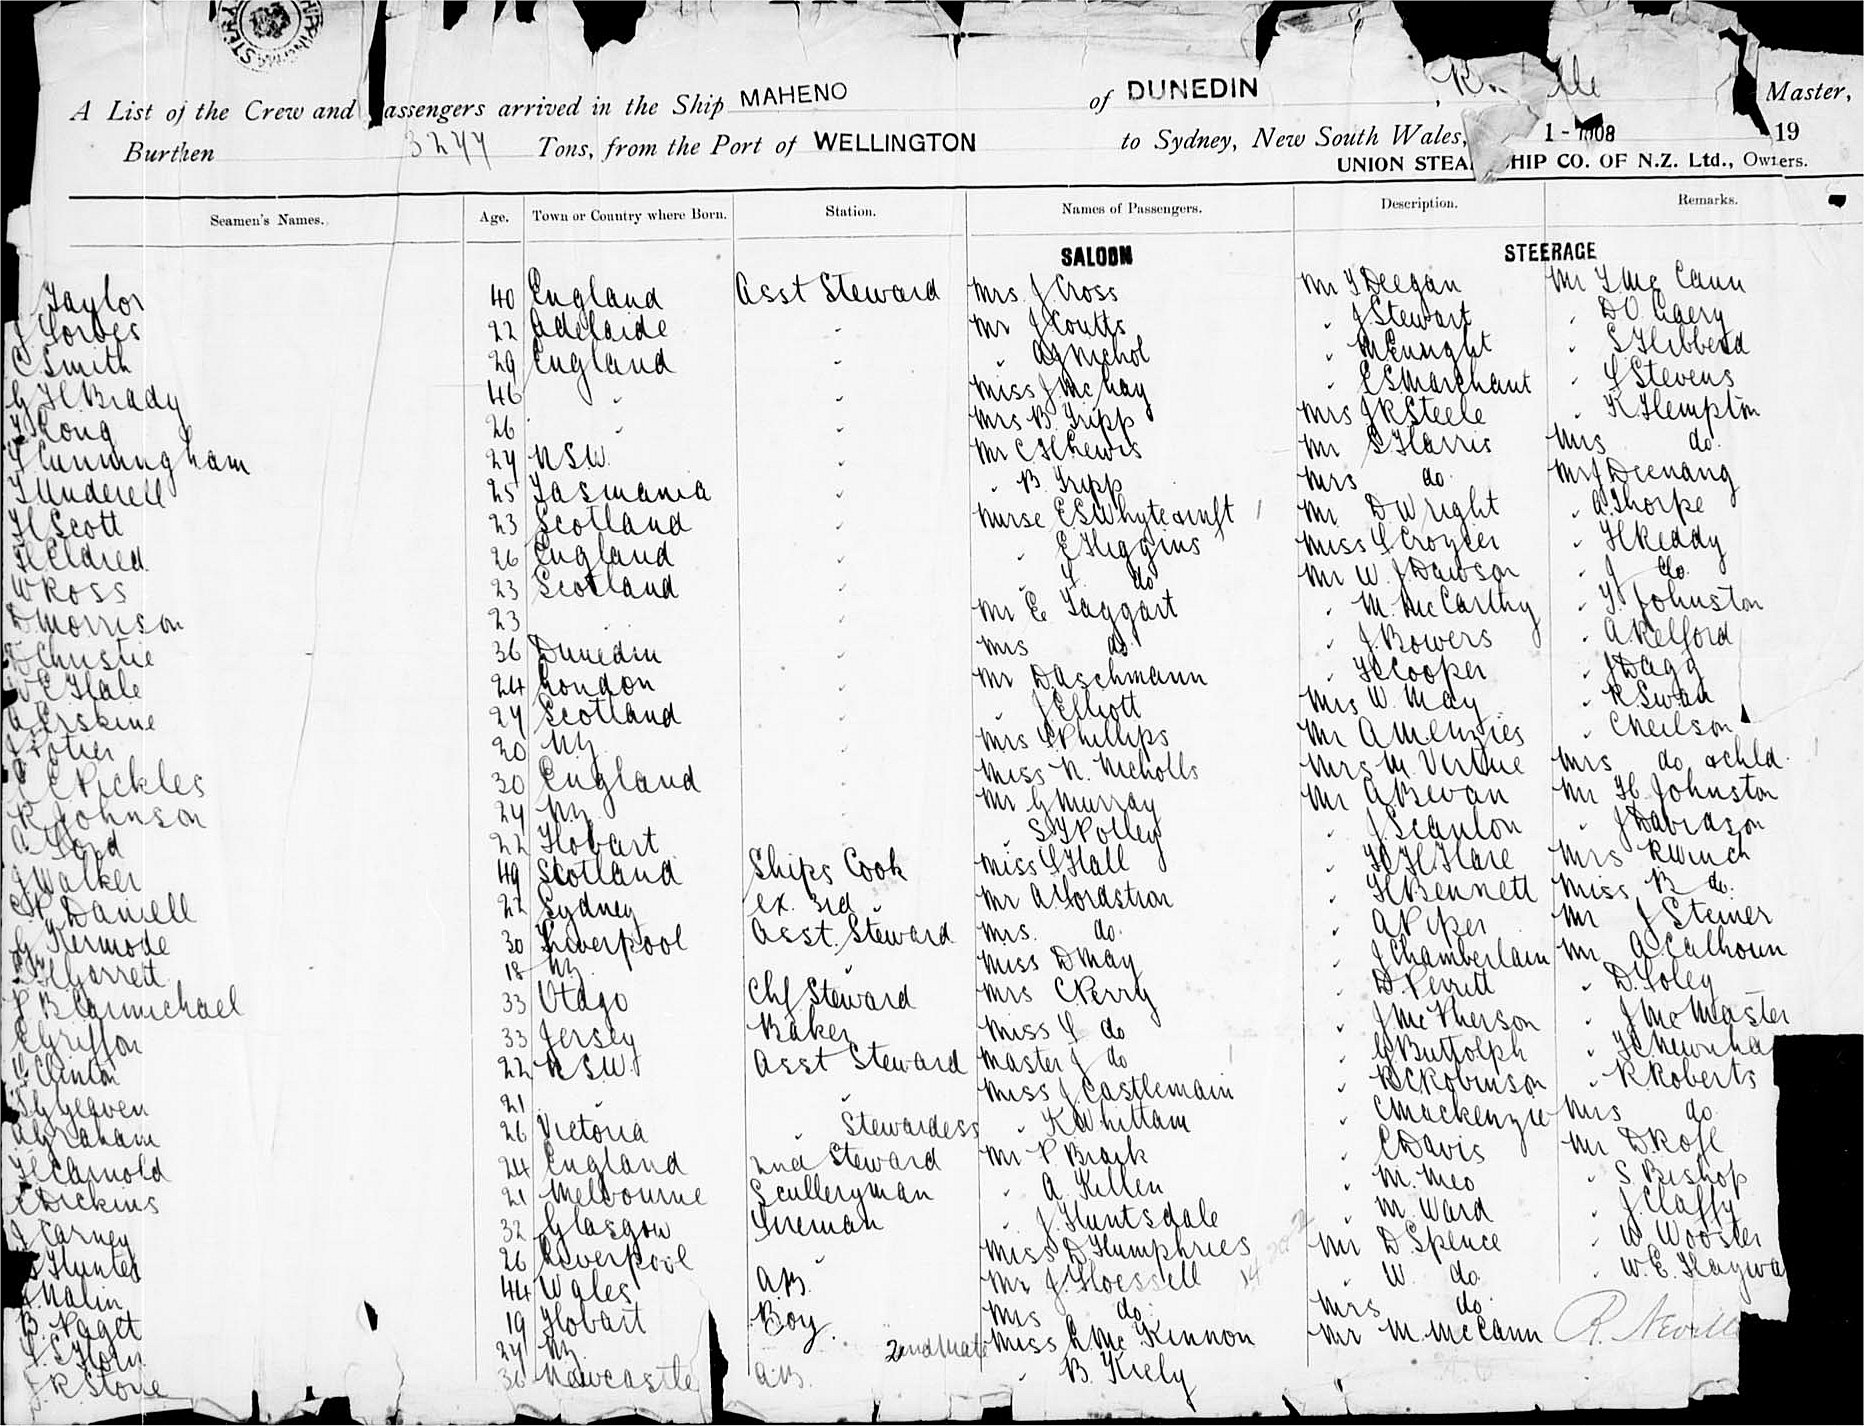 A List of the Crew and Passengers arrived in the Ship MAHENO of DUNEDIN Master,
Burthen 3244 Tons, from the Port of WELLINGTON to Sydney, New South Wales, 1 - 1908 19
UNION STEAMSHIP CO. OF N.Z. Ltd., Owners.
Seamen's Names. Age. Town or Country where Born. Station. Names of Passengers. Description. Remarks.
SALOON STEERAGE
Taylor 40 England Asst Steward Mrs J Cross Mr T Deegan Mr T Mc Cann
J Forbes 22 Adelaide " Mr J Coutts " J Stewart "
C Smith 29 England " " Nichol " M Enright " S Hibberd
G H Brady 46 " " Miss J McKay " E S Marchant " Stevens
Long 26 " " Mrs B. Tripp Mrs J R Steele " K Hempton
Cunningham 24 NSW. " Mr C H Lewis Mr S Harris Mrs do.
T Underell 25 Tasmania " " B. Tripp Mrs do. Mr J
H Scott 23 Scotland " Nurse E.S. Whytecraft Mr D Wright " A Thorpe
H Eldred 26 England " " E Higgins Miss Crozier " H Reddy
W Ross 23 Scotland " " do Mr W. J Dawson " J do.
D Morrison 23 " " Mr E Taggart " M. McCarthy " Johnston
Christie 36 Dunedin " Mrs do. " J. Bowers " A Relford
W E Hale 24 London " Mr Daschmann " H Cooper " J Dagg
A Erskine 24 Scotland " " J Elliott Mrs W. May " R Swan
20 NZ. " Mrs Phillips Mr A Menzies " C Neilson
C Pickles 30 England " Miss N. Nicholls Mrs M. Virtue Mrs do & chld.
R Johnson 24 NZ. " Mr G Murray Mr A Bevan Mr H Johnston
C Ford 22 Hobart " S T Polley " J. Scanlon " J Davidson
J Walker 49 Scotland Ships Cook Miss Hall " H. H. Hare Mrs R Winch
Daniell 22 Sydney ex. 3rd " Mr A Nordstrom " H Bennett Miss B do.
G Kermode 30 Liverpool Asst. Steward Mrs. do. " A Piper Mr J Steiner
H Garrett 18 NZ. " Miss D May " J Chamberlain Mr A Calhoun
P B Carmichael 33 Otago Chf Steward Mrs C Perry " D. Perritt " D. Foley
C Griffon 33 Jersey Baker Miss do " J McPherson " J McMaster
Clinton 22 N S W Asst Steward Master J do " G Buttolph "
21 " " Miss J Castlemain " R C Robinson " R Roberts
A Graham 26 Victoria " Stewardess " K Whittam " C Mackenzie Mrs do.
H Carnold 24 England 2nd Steward Mr P. Brack " C Davis Mr D Rose
C Dickins 21 Melbourne Sculleryman " A. Killen " M. Meo " S. Bishop
J Carney 32 Glasgow Fireman " J. Huntsdale " M Ward " J. Claffy
Hunter 26 Liverpool " Miss D Humphries Mr D. Spence " W Wooster
Malin 44 Wales A.B. Mr J. Hoessell " W. do. " W. E. Haywa
B. Paget 19 Hobart Boy. Mrs do. Mrs do. R. Neville
Horn 24 NZ. 2nd Mate Miss L Mc Kinnon Mr M. McCann
J R Stone 30 Newcastle A.B. " B. Kiely